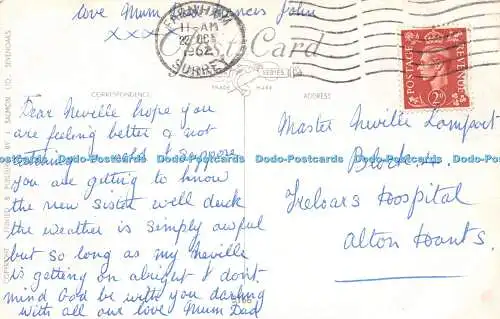 love Mum Dad Frances John
xxx
FARNHAM
11-AM
22 DEC
1962
SURREY
Post Card
TRADE MARK
SERIES
CORRESPONDENCE
ADDRESS
POSTAGE REVENUE
2D
Dear Neville hope you
are feeling better & not
catching cold I suppose
you are getting to know
the new Sister well duck
the weather is simply awful
but so long as my Neville
is getting on alright I dont
mind God be with you darling
with all our love Mum Dad
Master Neville Lamport
Block
Treloars Hospital
Alton Hants.
J. SALMON LTD., SEVENOAKS
Dodo-Postcards Dodo-Postcards Dodo-Postcards Dodo-Postcards Dodo-Postcards Dodo-Postcards